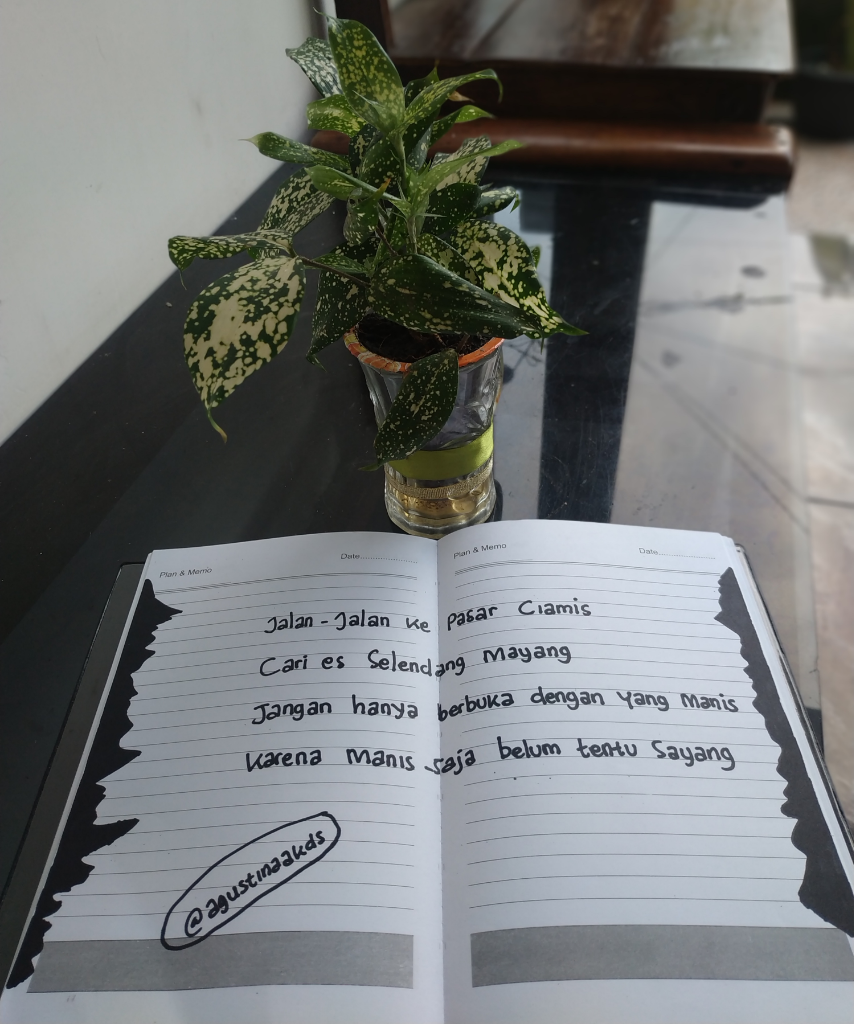 Plan & Memo Date....................
Plan & Memo Date....................
Jalan-Jalan ke Pasar Ciamis
Cari es Selendang Mayang
Jangan hanya berbuka dengan yang Manis
Karena Manis saja belum tentu Sayang
@agustinaakds